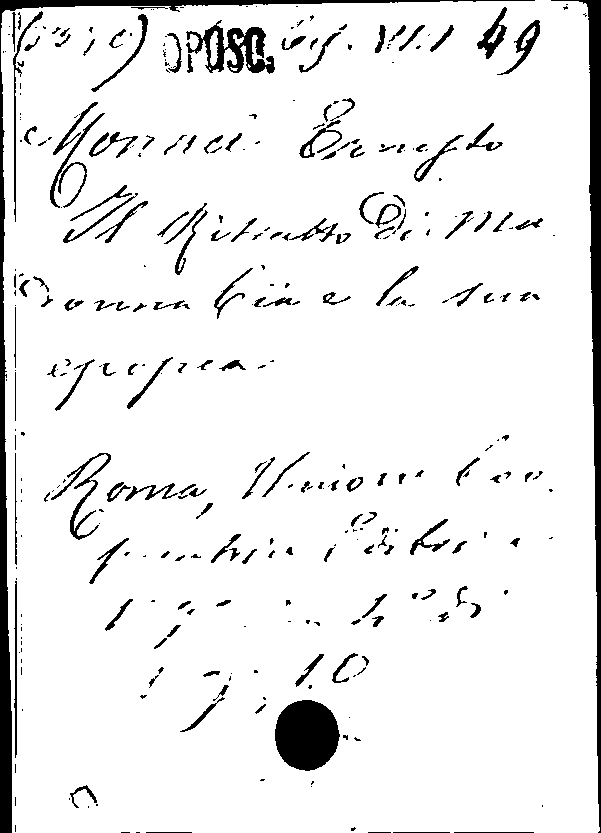 OPUSC. VI.1 49
Monaci Ernesto
Il Ritratto di Ma
donna Cia e la sua
epopea
Roma, Unione Coo
perativa Editrice
in 4° di
10